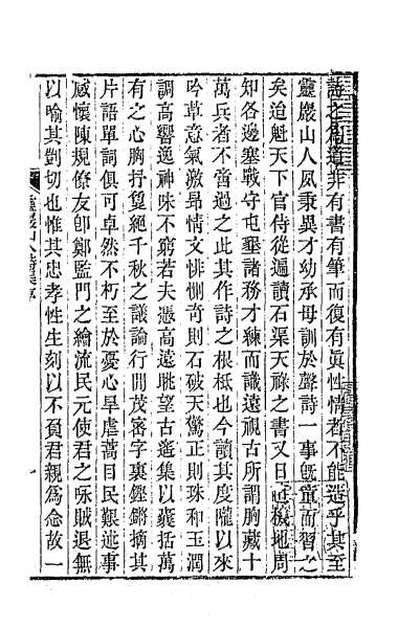 詩之爲道非有書有筆而復有眞性情者不能造乎其至
靈巖山人夙秉異才幼承母訓於聲詩一事旣童而習之
矣迨魁天下官侍從遍讀石渠天祿之書又日近機地周
知各邊塞戰守屯墾諸務才練而識遠視古所謂胸藏十
萬兵者不啻過之此其作詩之根柢也今讀其度隴以來
吟草意氣激昂情文悱惻奇則石破天驚正則珠和玉潤
調高響逸神味不窮若夫憑高遠眺望古遙集以囊括萬
有之心胸抒夐絕千秋之議論行閒茂密字裏鏗鏘摘其
片語單詞俱可卓然不朽至於憂心旱虐蒿目民艱述事
感懷陳規僚友卽鄭監門之繪流民元使君之咏賊退無
以喻其剴切也惟其忠孝性生刻以不負君親爲念故一
靈巖山人詩集序